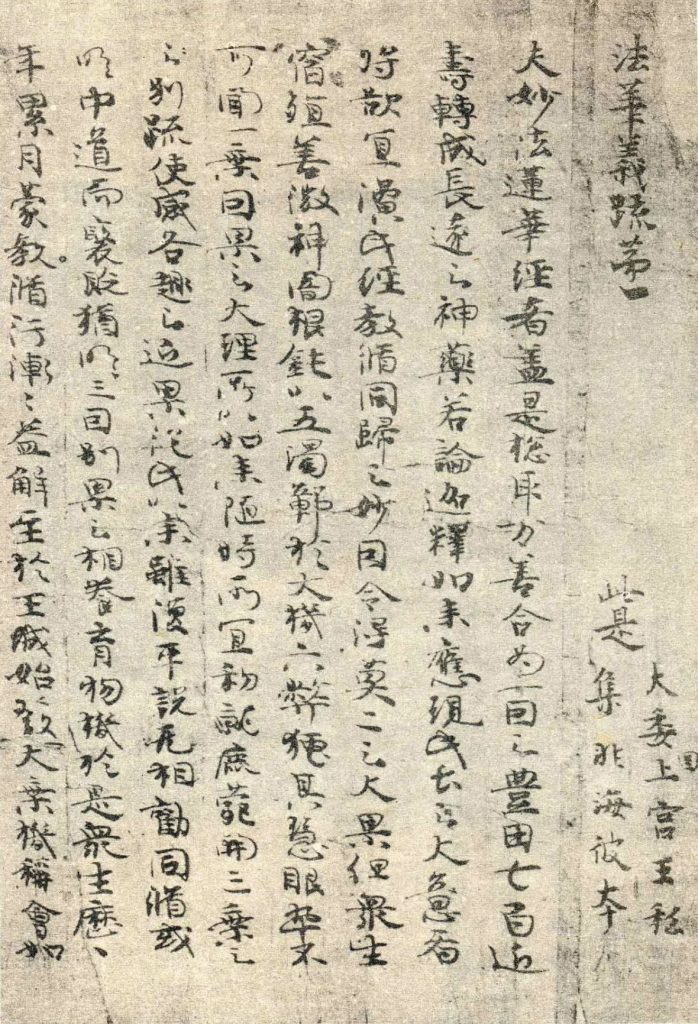 法華義疏第一
此是
大委国上宮王私
集非海彼本
夫妙法蓮華經者蓋是惣取万善合為一因之豊田七百近
壽轉成長遠之神藥若論迦釋如来應現此土之大意者
将欲宜演此經教脩同歸之妙因令得莫二之大果但衆生
宿殖善微神闇根鈍以五濁鄣於大機六弊掩其慧眼卒不
可聞一乗因果之大理所以如来随時所宜初就鹿苑開三乗之
之別疏使感各趣之近果従此以来雖復平説无相勸同脩或
明中道而褒貶猶明三因別果之相養育物機於是衆生歴ゝ
年累月蒙教脩行漸ゝ益解至於王城始發大乗機稱會如